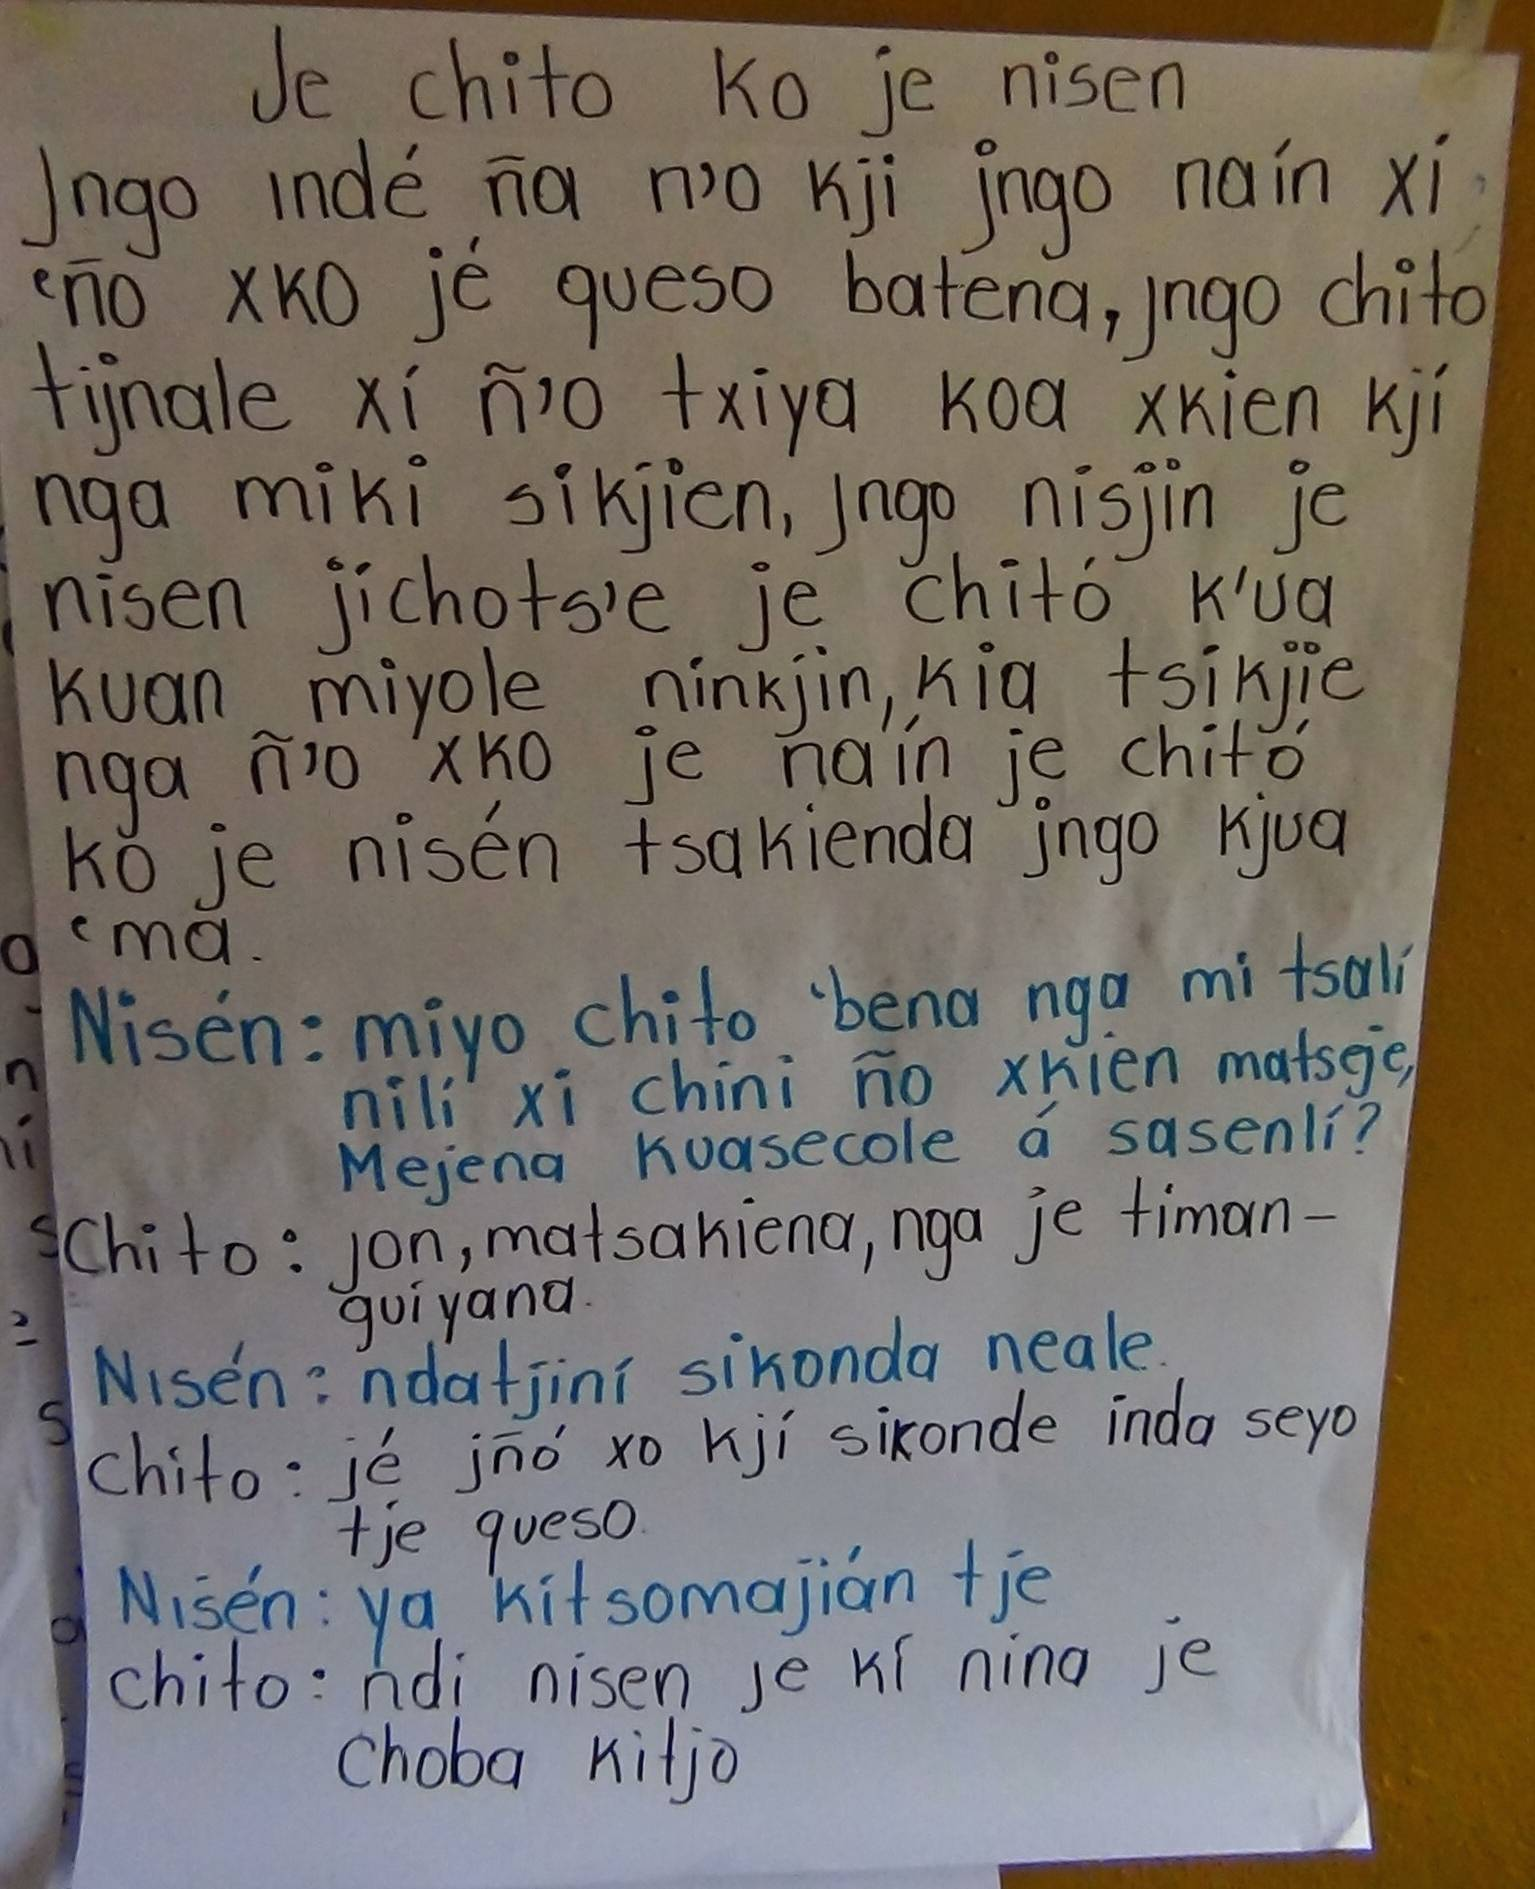 Je chito ko je nisen
Jngo indé ña n'o kji jngo naín xi
'ño xko jé queso batena, jngo chito
tijnale xí ñ'o txiya koa xkien kjí
nga miki sikjien, jngo nisjin je
nisen jíchots'e je chitó k'ua
kuan miyole nínkjin, kia tsikjie
nga ñ'o xko je naín je chitó
ko je nisén tsakienda jngo kjua
'ma.
Nisén: miyo chito 'bena nga mi tsalí
nilí xi chini ño xkien matseje,
Mejena kuasecole á sasenlí?
Chito: jon, matsakiena, nga je timan-
guiyana.
Nisén: ndatjiní sikonda neale.
Chito: jé jñó xo kjí sikonde inda seyo
tje queso.
Nisén: ya kitsomajián tje
chito: ndi nisen je kí nina je
choba kitjo